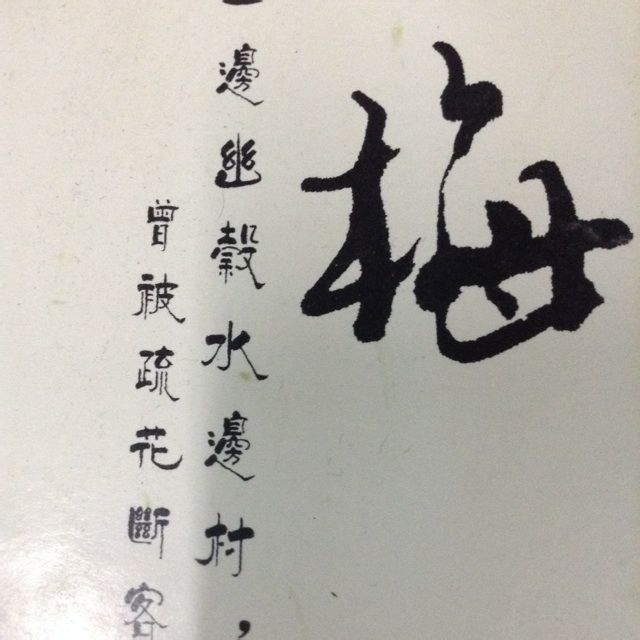 梅
一邊幽穀水邊村，
曾被疏花斷客